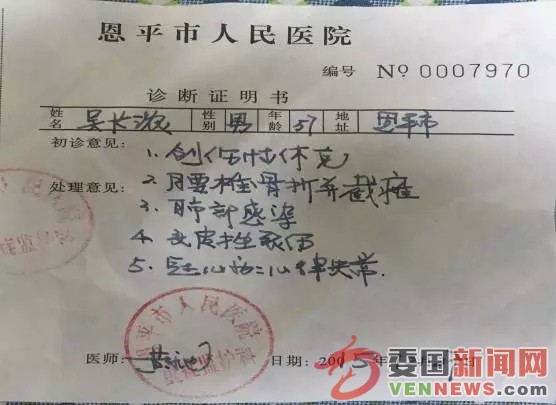 恩平市人民医院
编号 No 0007970
诊断证明书
姓名 吴长 性别 男 年龄 57 地址 恩平市
初诊意见：
1. 创伤性休克
处理意见：
2. 腰椎骨折并截瘫
3. 肺部感染
4. 皮挫裂伤
5. 心律失常.
恩平市人民医院
医师：
日期：2015年
委国新闻网
VENNEWS.COM